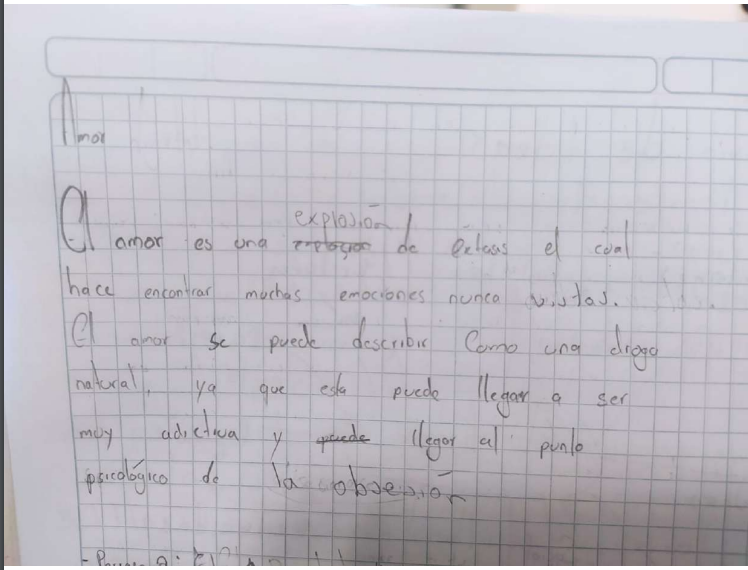 Amor
El amor es una explosión de éxtasis el cual
hace encontrar muchas emociones nunca vistas.
El amor se puede describir Como una droga
natural, ya que esta puede llegar a ser
muy adictiva y puede llegar al punto
psicológico de la obsesión